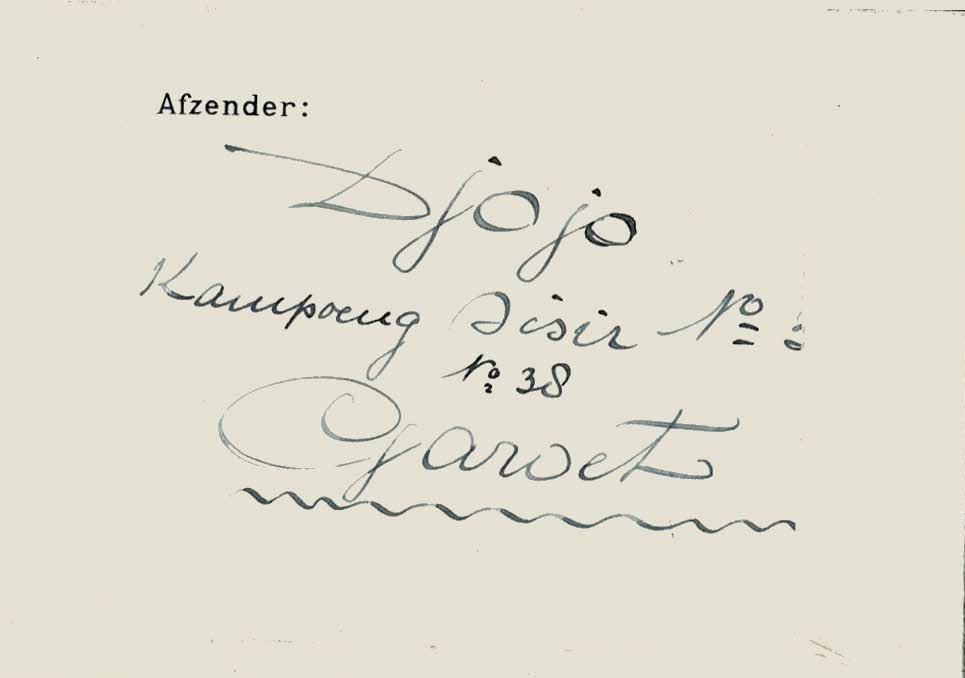 Afzender:
Djojo
Kampoeng Sisir No :
No 38
Garoet